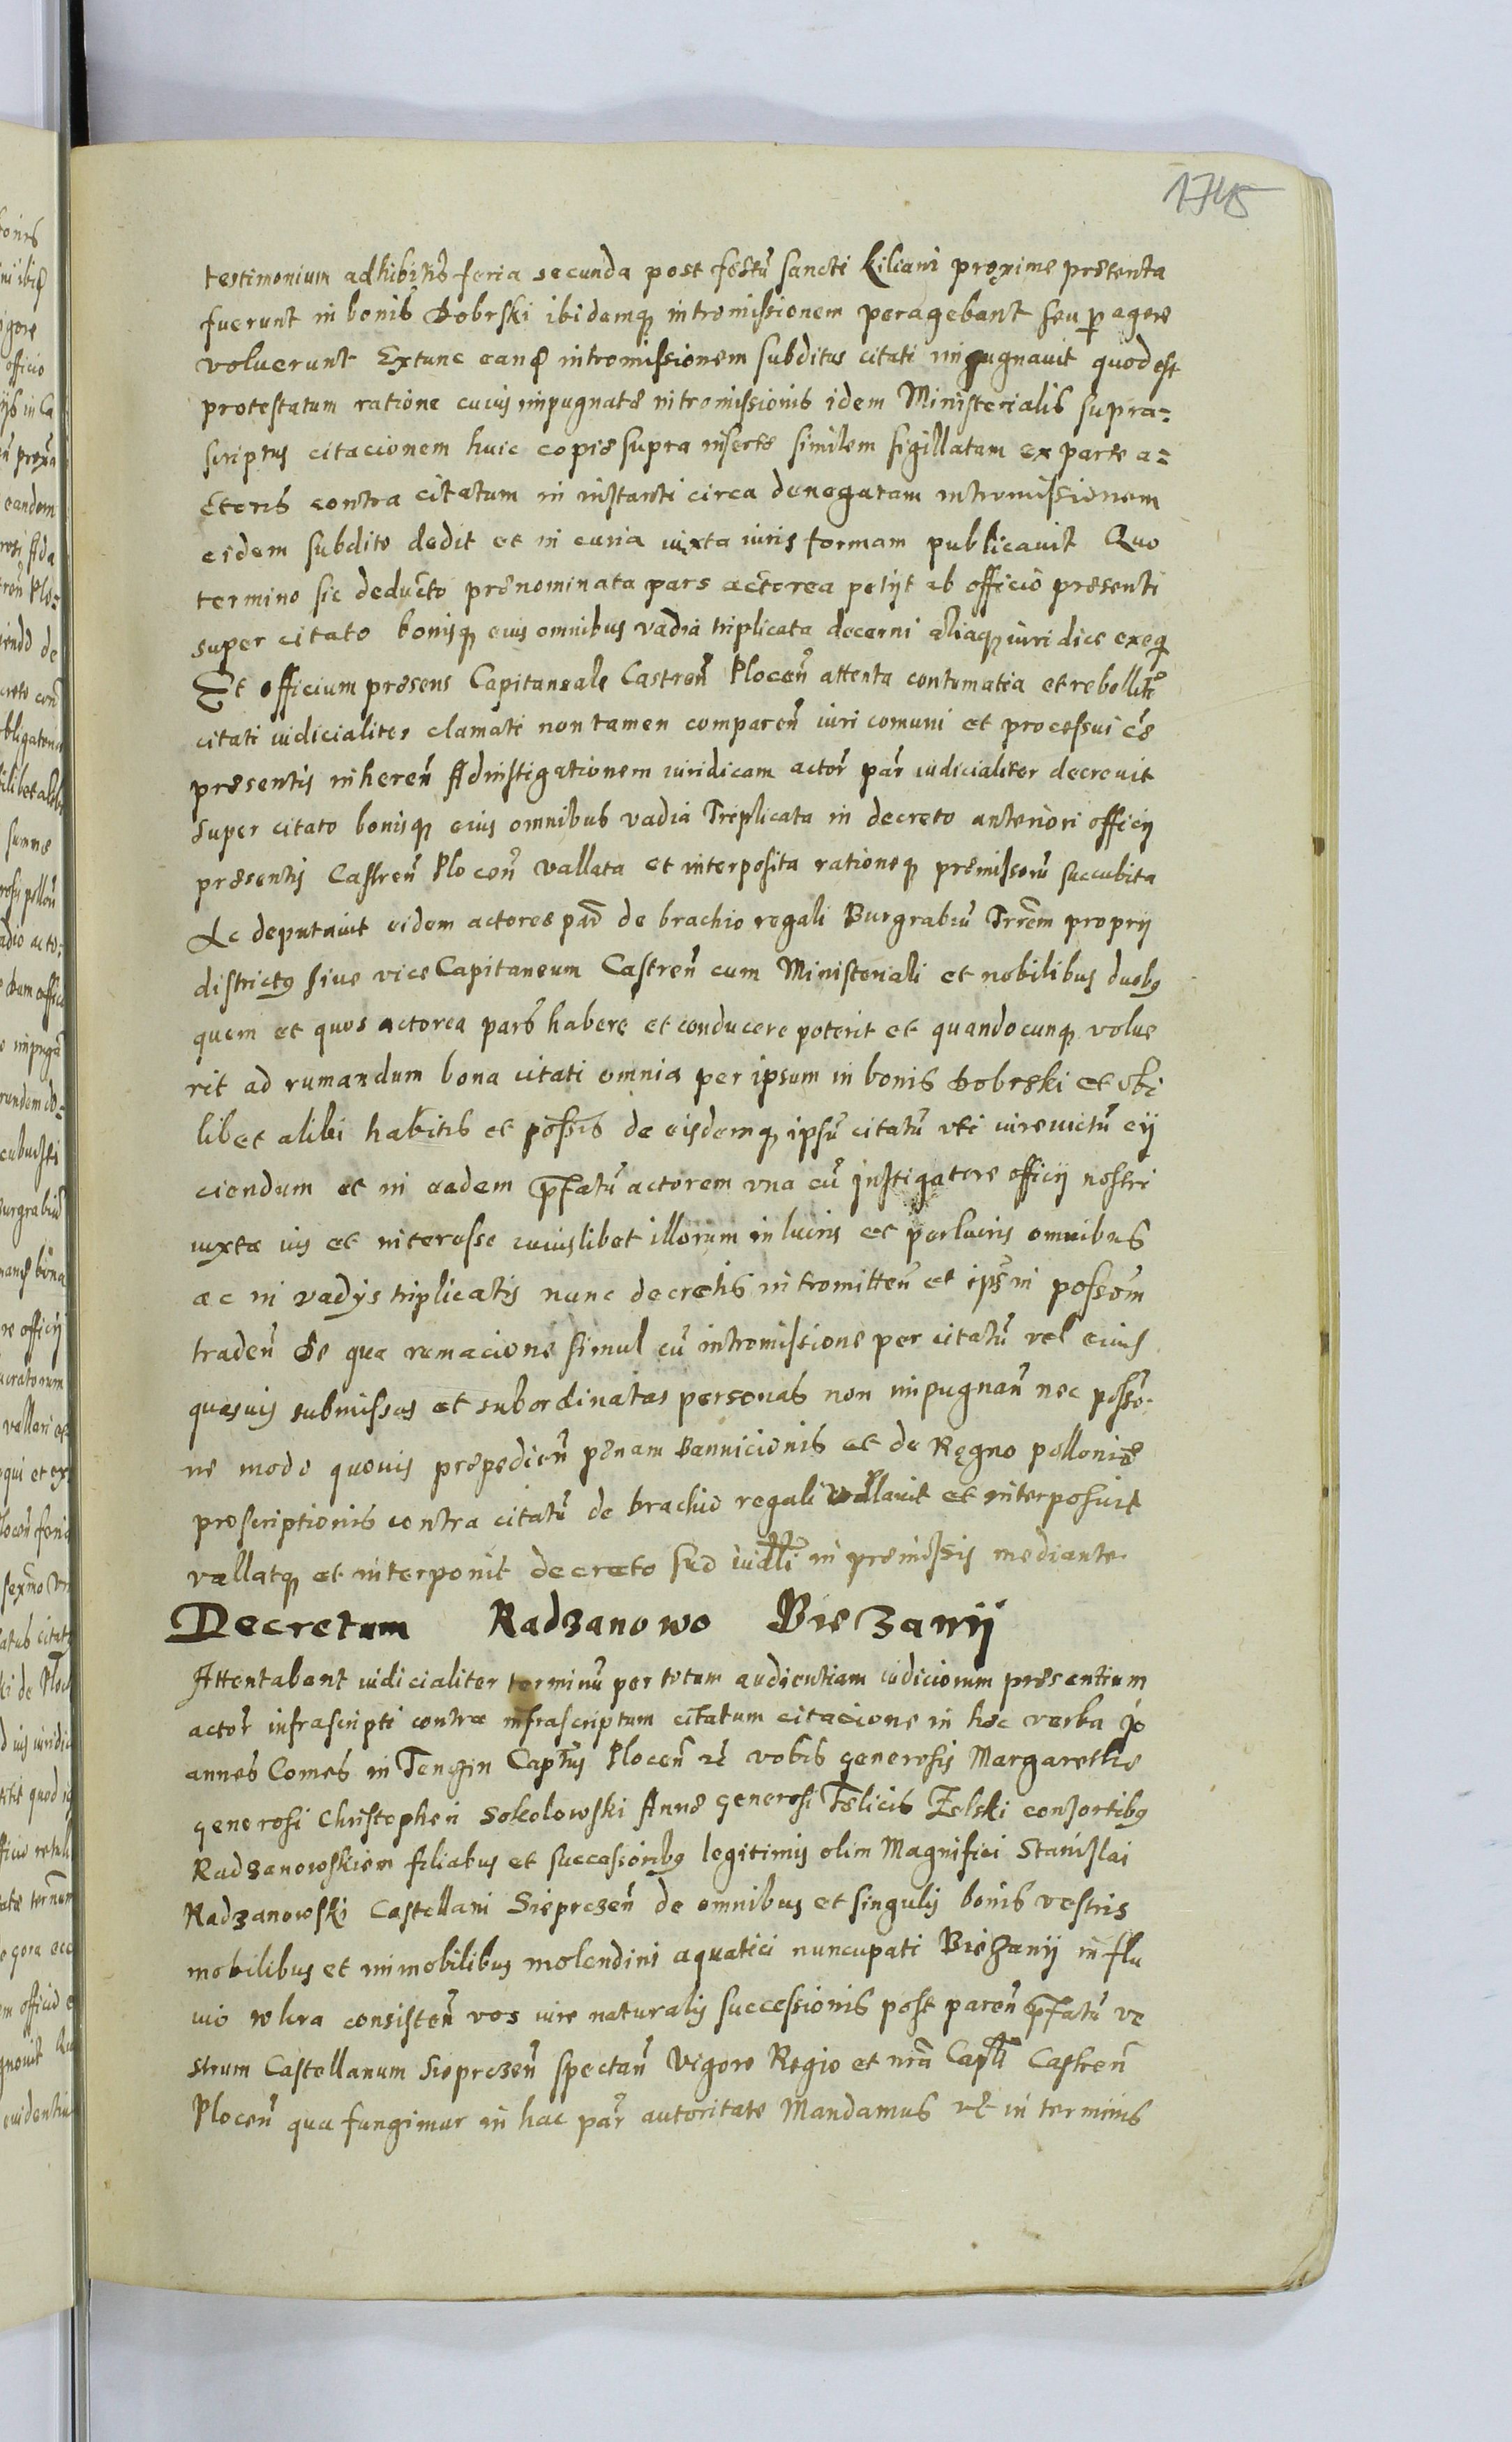 1745
testimonium adhibitis feria secunda post festũ sancti Kiliani proxime pretenta
fuerunt in bonis Dobrski ibidemq3 intromissionem peragebant seu p agere
voluerunt Extunc eand intromissionem subditus citati impugnauit quod est
protestatum ratione cuius impugnatę intromissionis idem Ministerialis supra=
scriptus citacionem huic copię supra insertę similem sigillatam ex parte a=
ctoris contra citatum in instanti circa denegatam intromissionem
eidem subdito dedit et in curia iuxta iuris formam publicauit Quo
termino sic deducto pręnominata pars actorea petijt ab officio praesenti
super citato bonisq3 eius omnibus vadia triplicata decerni aliaq3 iuridice exeq
Et officium praesens Capitaneale Castreñ Ploceñ attenta contumatia et rebellie
citati iudicialiter clamati non tamen compareñ iuri comuni et processui cę
praesentis inhereñ Ad instigationem iuridicam actor par iudicialiter decreuit
super citato bonisq3 eius omnibus vadia Triplicata in decreto anteriori officij
praesentis Castreñ Ploceñ vallata et interposita rationeq3 pręmissorũ succubita
Ac deputauit eidem actoree par de brachio regali Burgrabiũ Trrem proprij
districtus siue vice Capitaneum Castreñ cum Ministeriali et nobilibus duobus
quem et quos actorea pars habere et conducere poterit et quandocunq3 volue
rit ad rumandum bona citati omnia per ipsum in bonis Dobrski et vbi
libet alibi habitis et possis de eisdemq3 ipsũ citatũ vti iure victũ eij
ciendum et in eadem pfatũ actorem vna cũ instigatore officij nostri
iuxta ius et interesse cuiuslibet illorum in lucris et perlucris omnibus
ac in vadijs triplicatis nunc decretis intromitteñ et ips in possom
tradeñ De qua rumacione simul cũ intromissione per citatũ vel eius
quasuis submissas et subordinatas personas non impugnañ nec posso
ne modo quouis prępedieñ pęnam Bannicionis et de Regno pollonię
proscriptionis contra citatũ de brachio regali vallauit et interposuit
vallatq3 et interponit decreto suo iudlli in pręmissis mediante
Decretum Radzanowo Biezanij
Attentabant iudicialiter terminũ per totam audientiam iudiciorum praesentium
actor infrascripti contra infrascriptum citatum citacione in hęc verba Jo
annes Comes in Tenczin Captus Ploceñ rc vobis generosis Margarethę
generosi Christopheri Sokolowski Annę generosi Felicis Zelski consortibus
Radzanowskiem filiabus et successoribus legitimis olim Magnifici Stanislai
Radzanowski Castellani Sieprczeñ de omnibus et singulis bonis vestris
mobilibus et immobilibus molendini aquatici nuncupati Biezanij in flu
uio wkra consisteñ vos iure naturalis successionis post pareñ pfatũ ve
strum Castellanum Sieprczeñ spectañ Vigore Regio et nrã Caplli Castreñ
Ploceñ qua fungimur in hac par autoritate Mandamus vt in terminis